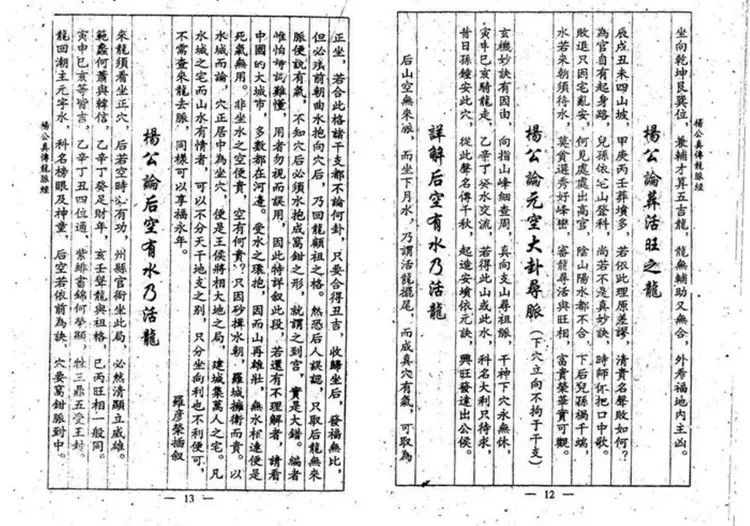 楊公真傳龍脈經
坐向乾坤艮巽位，兼輔才昇五吉龍，龍無輔助又無合，外秀福地內主凶。
楊公論葬活旺之龍
辰戌丑未四山坡，甲庚丙壬葬墳多，若依此理原差謬，清貴名聲敗如何？
為官自有起身路，兒孫依㞢山登科，尚若不是真妙訣，時師你把口中歌。
敗退只因宅亂安，何見處處出高官，陰山陽水都不合，下后兒孫禍千端，
水若來朝須待水，莫貪過秀好峰巒，審龍尋活與旺相，富貴榮華實可觀。
楊公論元空大卦尋脈（下穴立向不拘于干支）
玄機妙訣有因由，向指山峰細查周，真向支山尋祖脈，干神下穴永無休，
寅申巳亥騎龍走，乙辛丁癸水交流，若得此山或此水，科名大利只待求，
昔日孫鍾安此穴，從此聲名傳千秋，起造安墳依元訣，興旺發達出公侯。
詳解后空有水乃活龍
后山空無來脈，而坐下月水，乃謂活龍擺尾，而成真穴有氣，可取為
— 12 —
正坐，若合此格諸干支都不論何卦，只要合得丑吉，收歸坐后，發福無比，
但必須前朝曲水抱向穴后，乃回龍顧祖之格。然恐后人誤認，只取后龍無來
脈便說有氣，不知穴后必須水抱成窩鉗之形，就謂之到宮，實是大錯。編者
唯怕詩訣難懂，用者勿視而誤用，因此特詳叙此段，若還有不理解者，請看
中國的大城市，多數都在河邊。受水之環抱，因而山再雄壯，無水相連便是
死氣無用。非坐水之空便貴，空有何貴？只因砂揖水朝，羅城擁衛而貴。以
水城而論，穴正居中為坐穴，便是王侯將相大地之局，建城集萬人之宅。凡
水城之宅而山水有情者，可以不分天干地支之別，只分坐向利也不利便可，
不需查來龍去脈，同樣可以享福永年。
羅彦榮插叙
楊公論后空有水乃活龍
來龍須看坐正穴，后若空時必有功，州縣官衙坐此局，必然清顯立威雄。
範蠡何蕭與韓信，乙辛丁癸足財年，亥壬聳龍與祖格，巳丙旺相一般同。
寅申巳亥等皆言，乙辛丁丑四位通，紫緋晝錦何榮顯，牲三鼎五受王封。
龍回潮主元宇水，科名榜眼及神童，后空若依前為訣，穴要窩鉗脈到中。
楊公真傳龍脈經
— 13 —